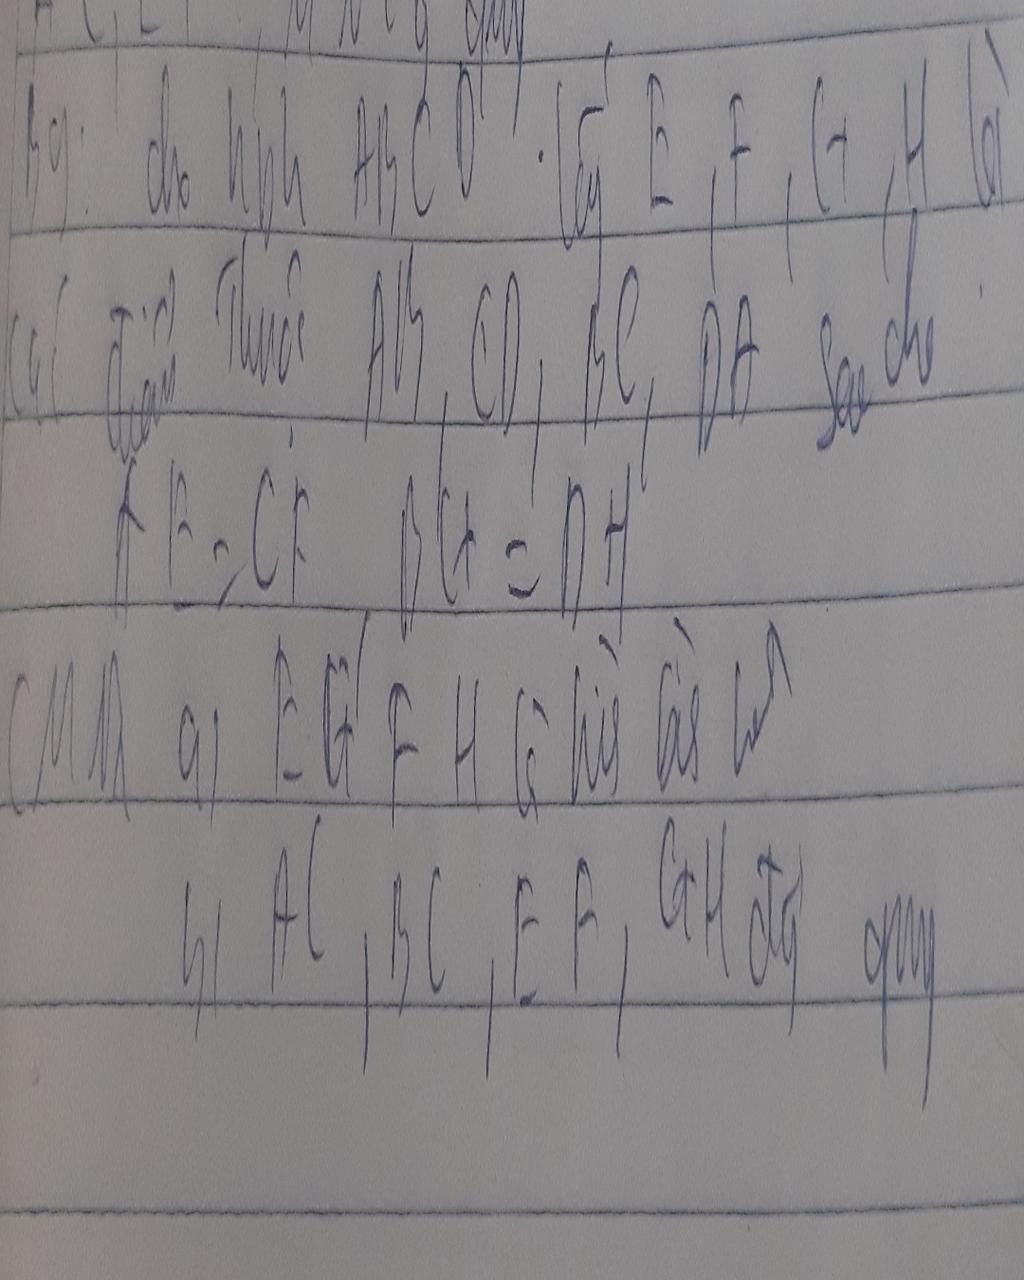 B9: cho hình ABCD. Lấy E, F, G, H là
các điểm thuộc AB, CD, BC, DA sao cho
AE = CF BG = DH
CMR a, EGFH là hìn hàn
b, AC, BC, EF, GH đg quy